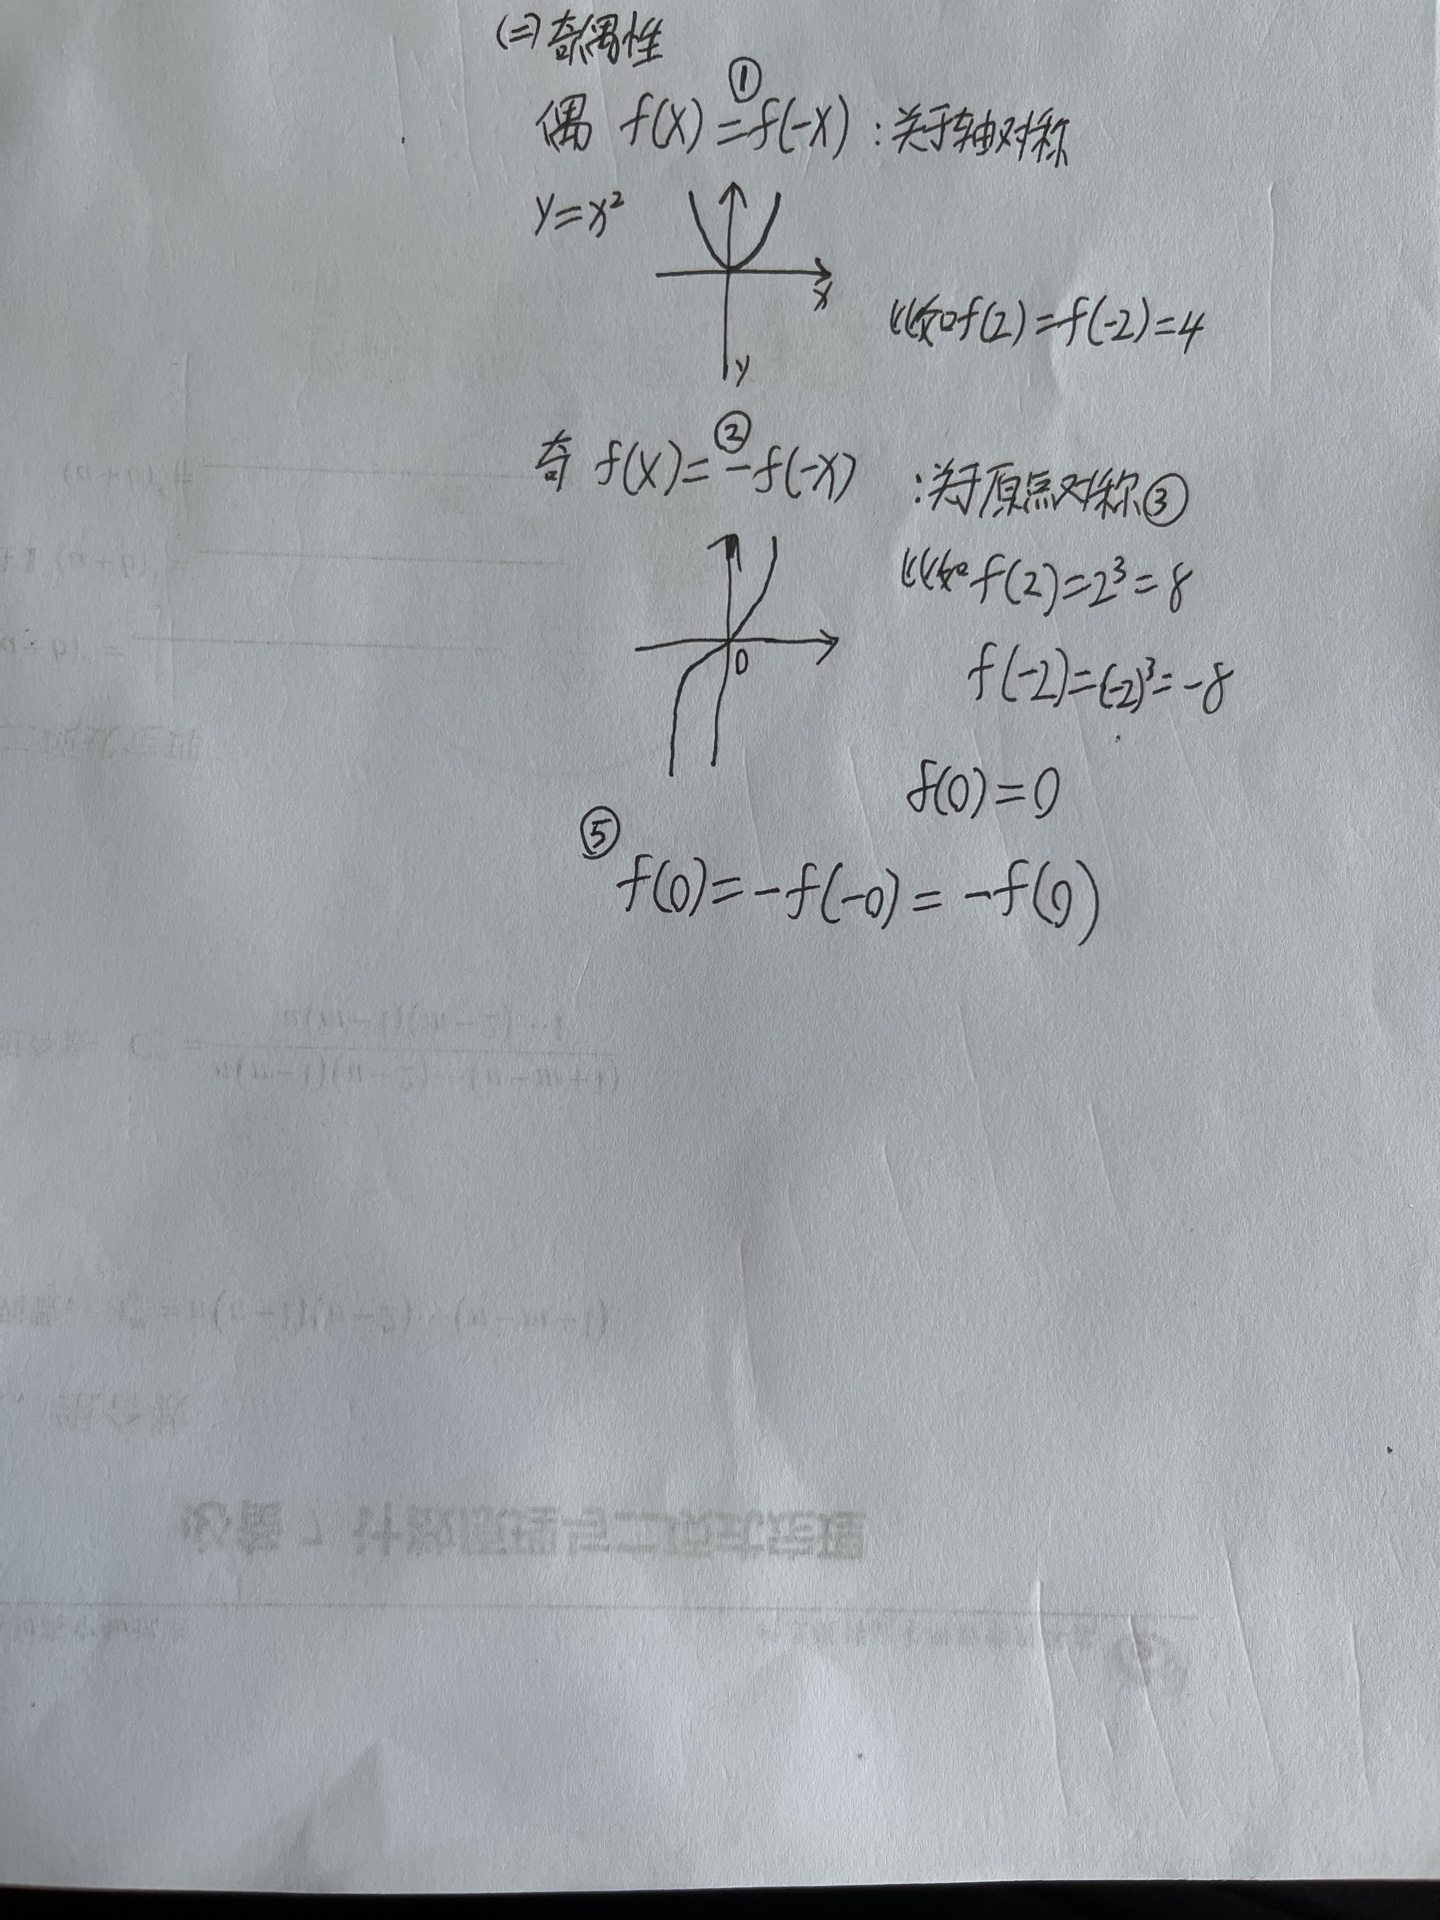 (二)奇偶性
①
偶 f(x)=f(-x):关于轴对称
y=x²
x
比如f(2)=f(-2)=4
y
②
奇 f(x)=-f(-x) :关于原点对称③
比如f(2)=2³=8
0
f(-2)=(-2)³=-8
f(0)=0
⑤
f(0)=-f(-0)=-f(0)